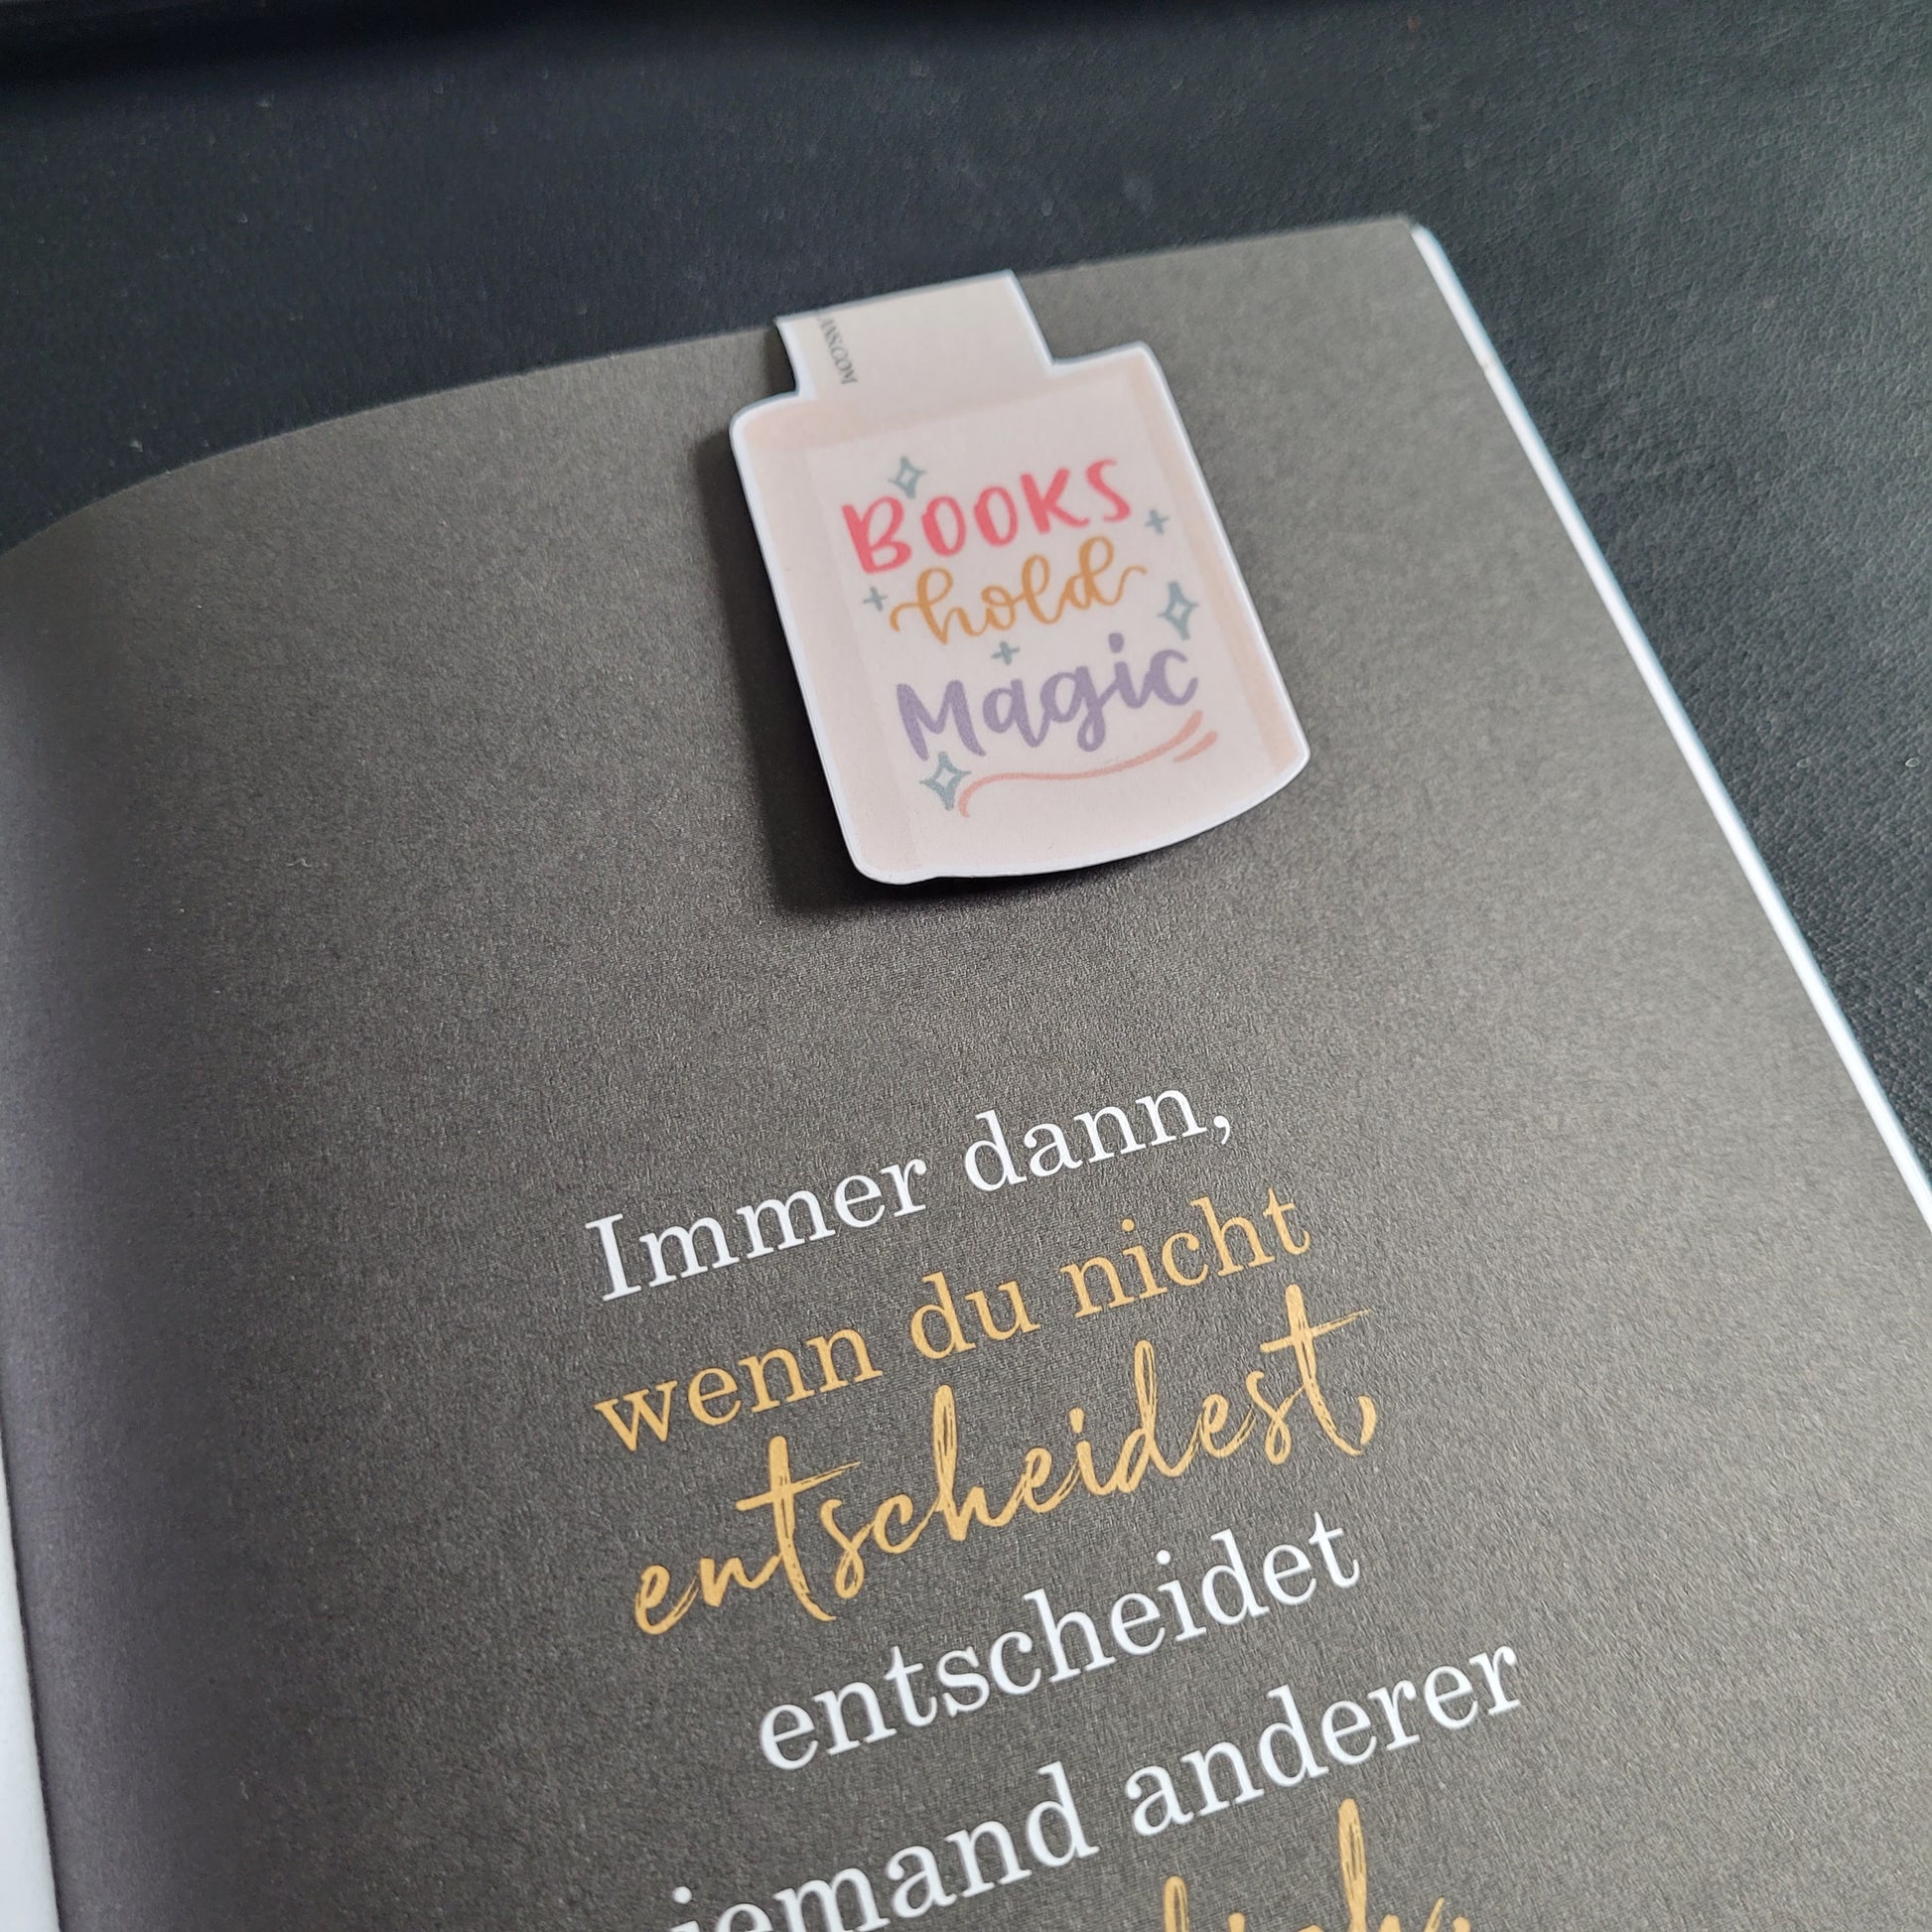 BOOKS
hold
Magic
Immer dann,
wenn du nicht
entscheidest,
entscheidet
jemand anderer